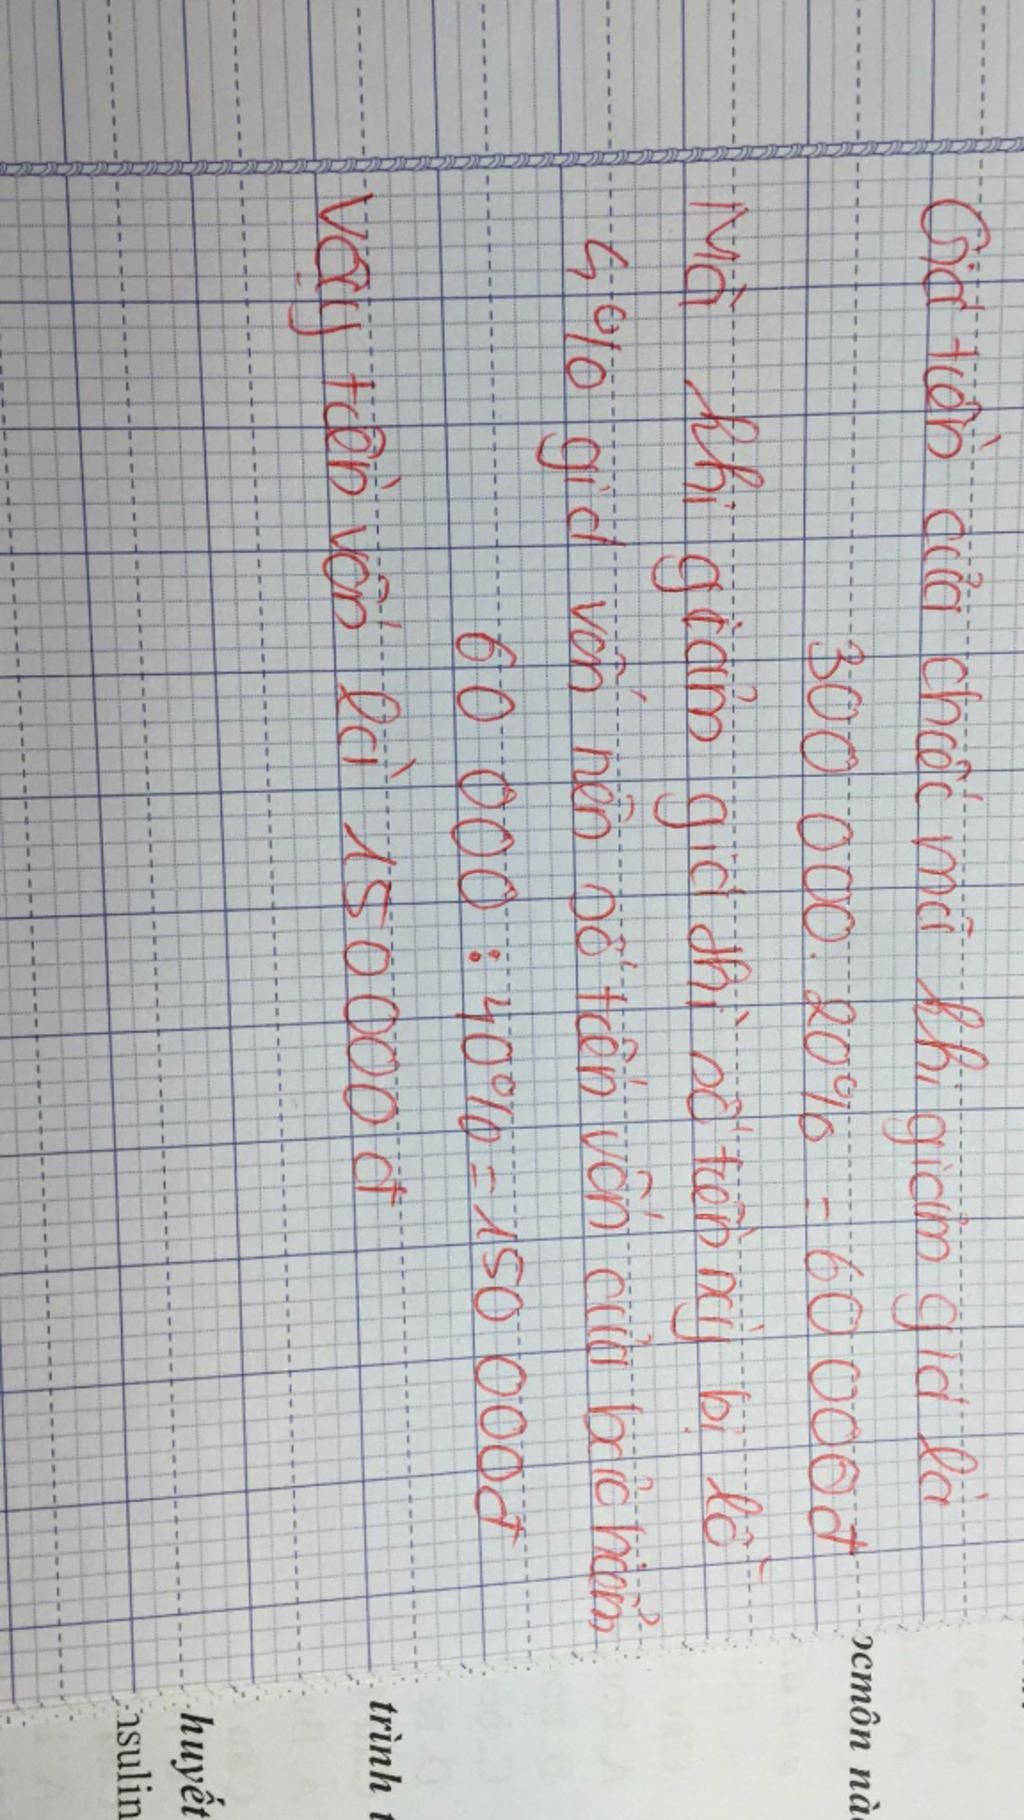 Giá tiền của chiếc mũ khi giảm giá là
300 000. 20% = 60 000đ
Mà khi giảm giá thì số tiền này bị lỗ
4% giá vốn nên số tiền vốn của bác hiển
60 000 : 40% = 150 000đ
Vậy tiền vốn là 150 000đ
ocmôn nà
trình t
huyết
nsulin